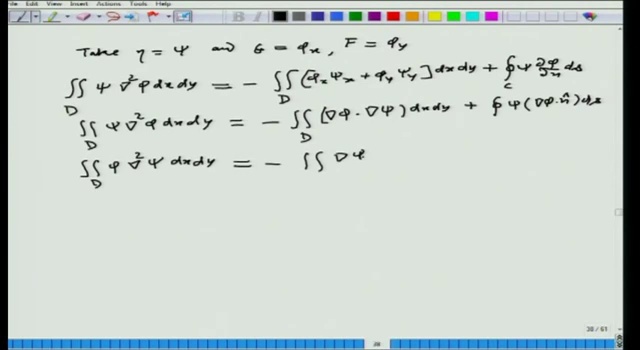 Edit View Insert Actions Tools Help
Take η = ψ and G = φₓ, F = φᵧ
∬_D ψ ∇²φ dx dy = - ∬_D [φₓψₓ + φᵧψᵧ] dx dy + ∮_C ψ ∂φ/∂n ds
∬_D ψ ∇²φ dx dy = - ∬_D (∇φ · ∇ψ) dx dy + ∮ ψ (∇φ · n̂) ds
∬_D φ ∇²ψ dx dy = - ∬ ∇φ
38